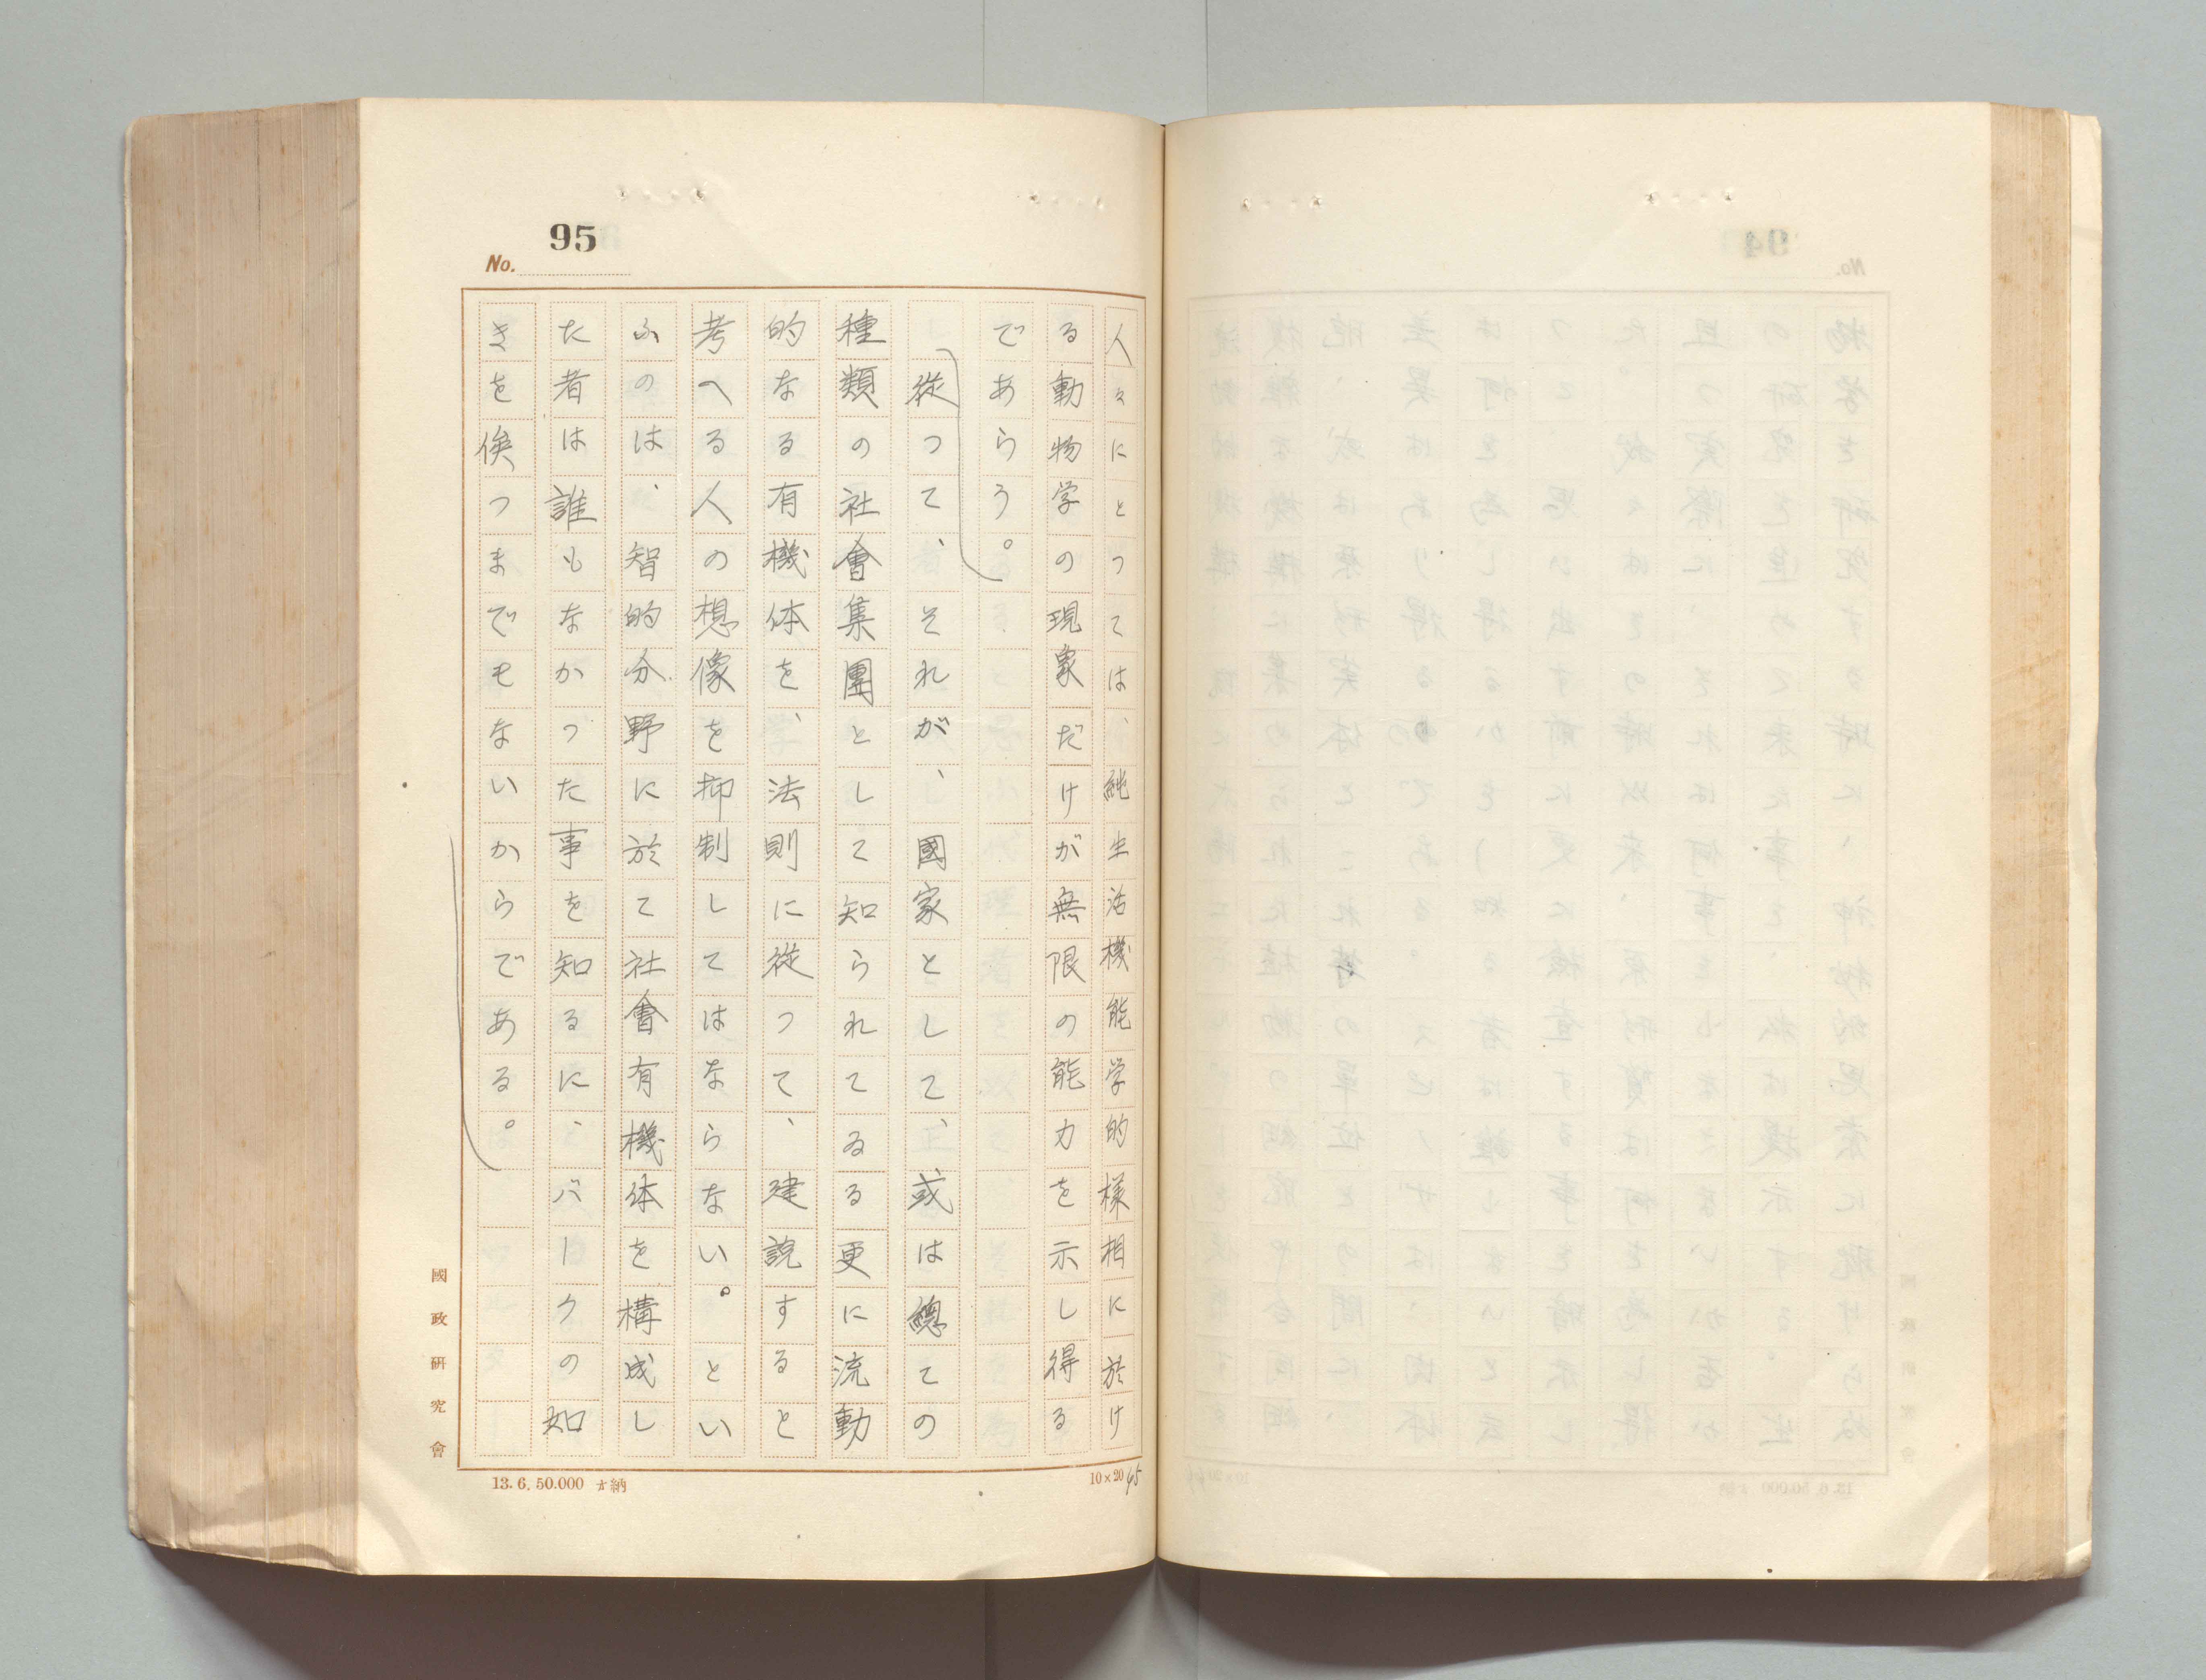 95
No.
人々にとつては、純生活機能学的様相に於け
る動物学の現象だけが無限の能力を示し得る
であらう。
従つて、それが、國家として、或は總ての
種類の社會集團として知られてゐる更に流動
的なる有機体を、法則に従つて、建説すると
考へる人の想像を抑制してはならない。とい
ふのは、智的分野に於て社會有機体を構成し
た者は誰もなかつた事を知るに、バークの如
きを俟つまでもないからである。
國政研究會
13.6.50.000 納
10×20
45